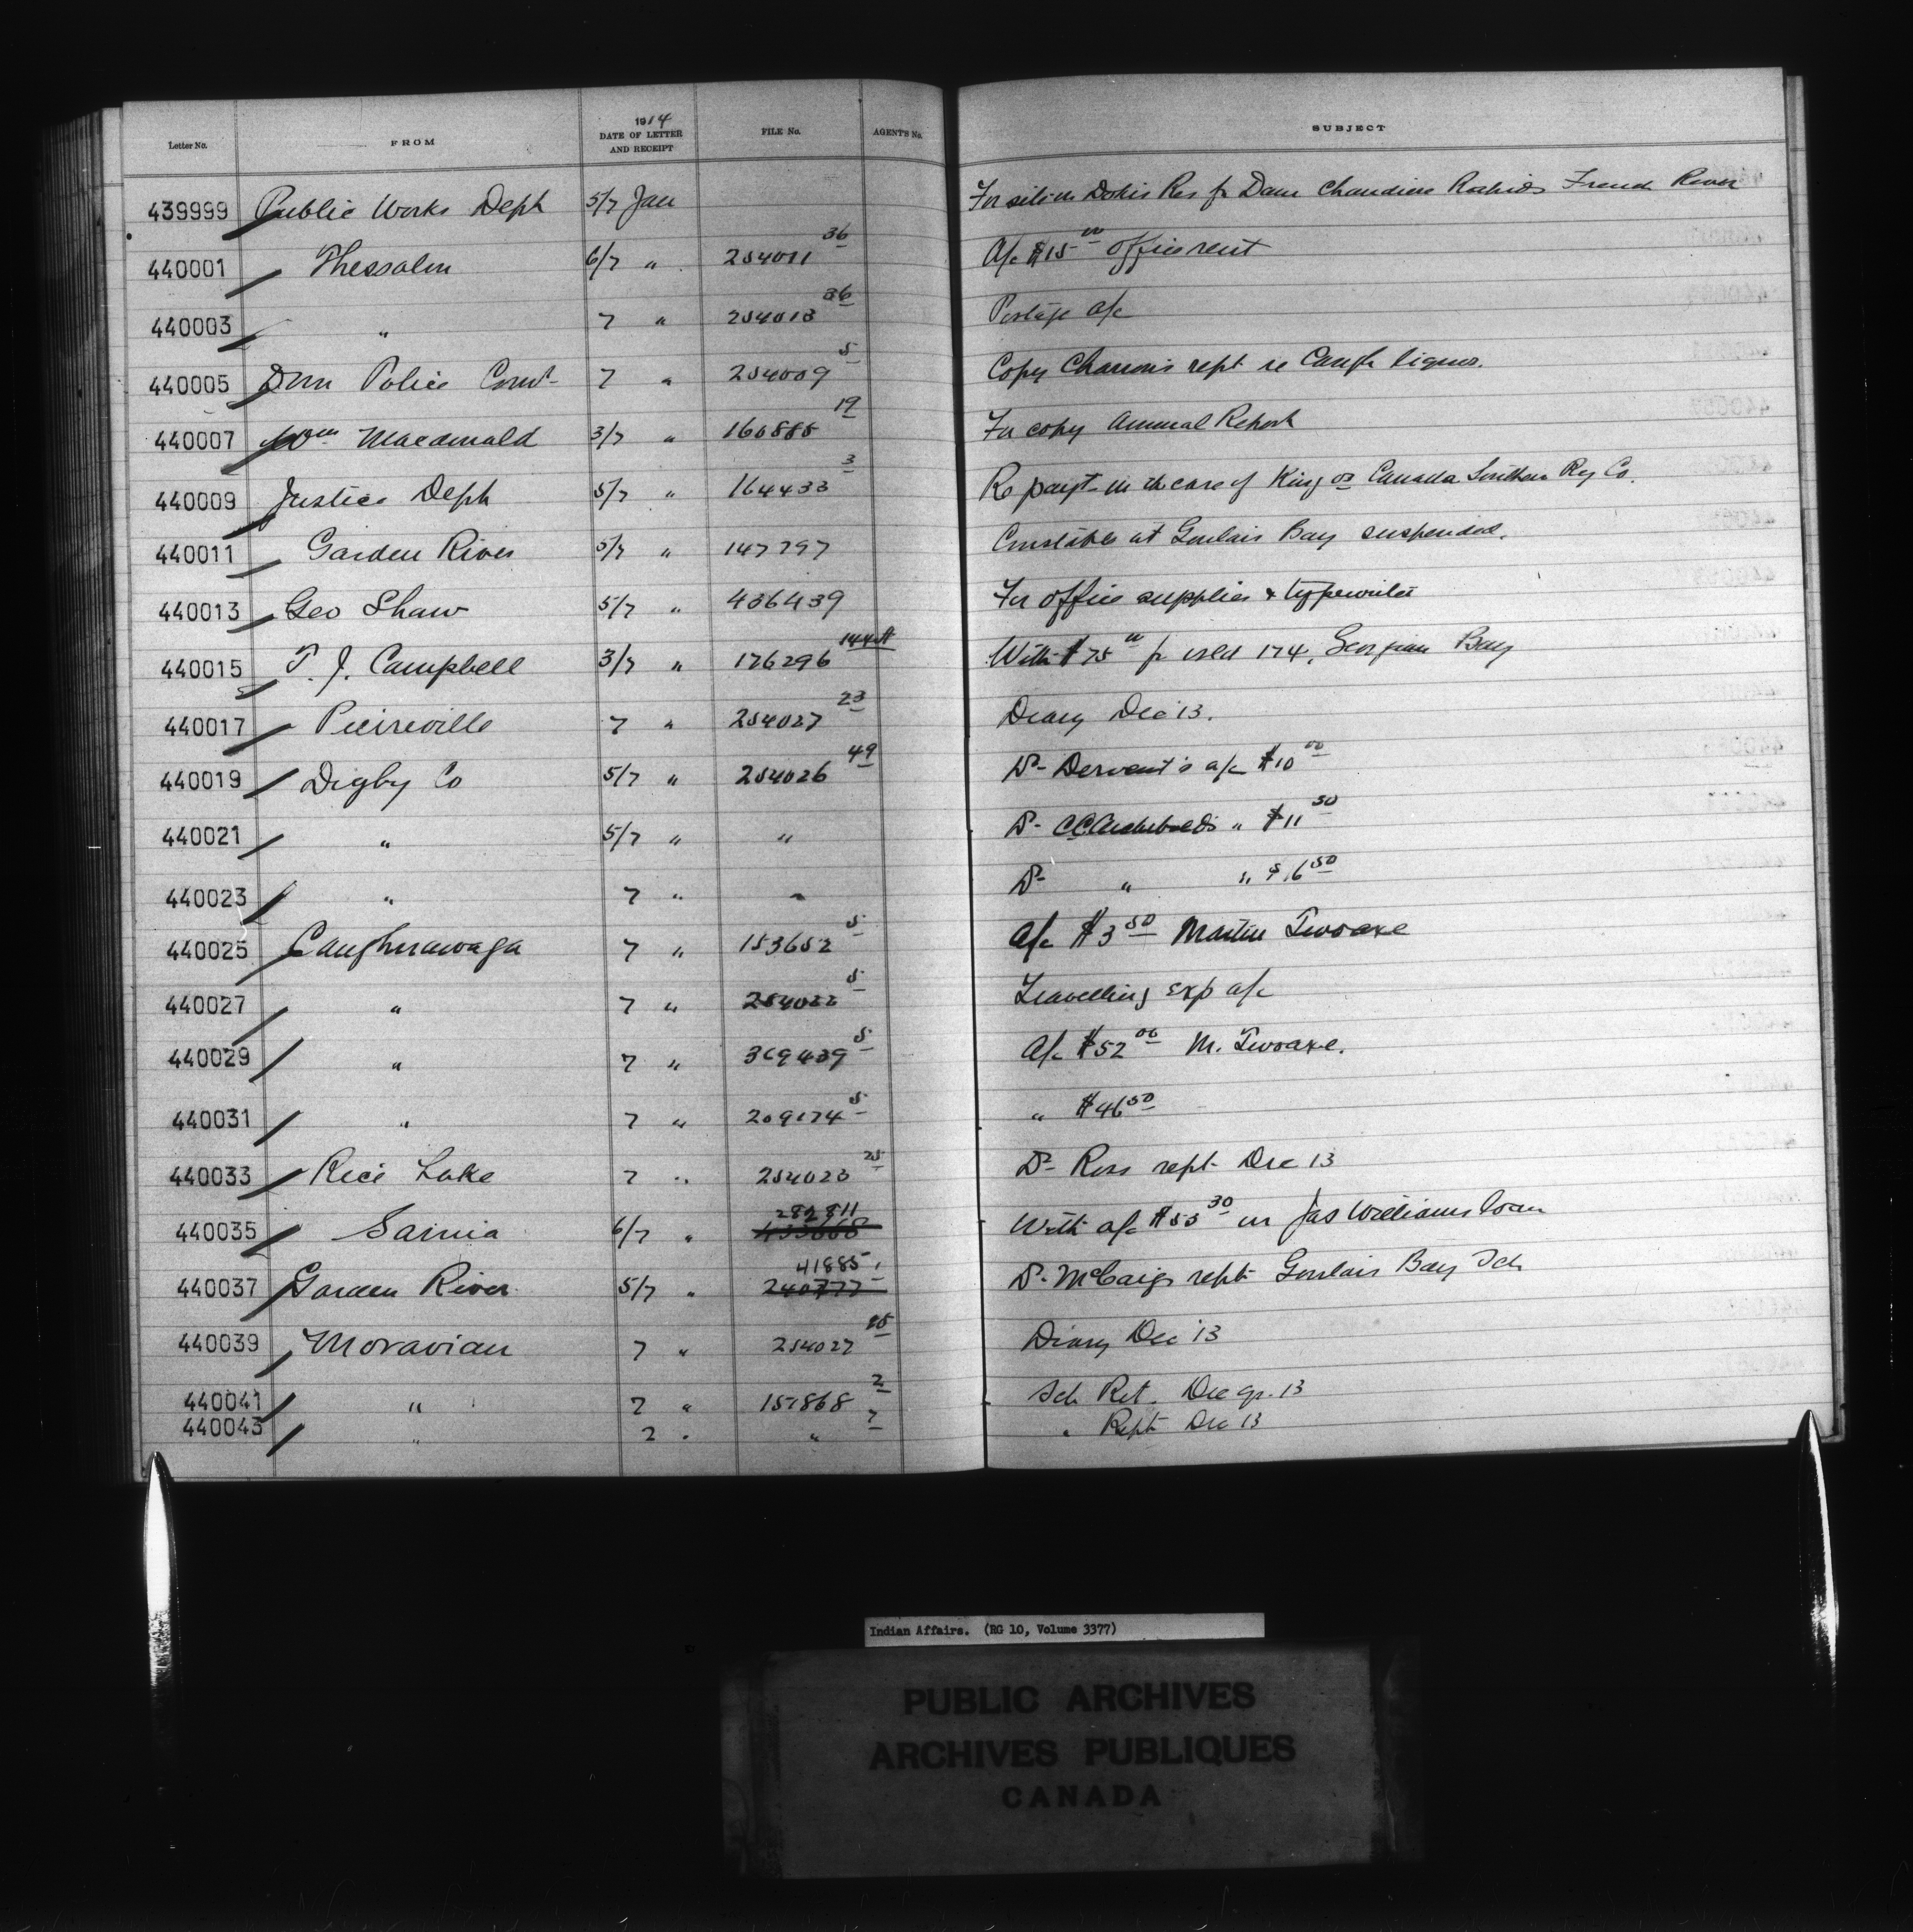 Letter No. FROM 1914 DATE OF LETTER AND RECEIPT FILE No. AGENT'S No. SUBJECT
439999 Public Works Dept 5/7 Jan For site in Dokis Res fr Dam Chaudiere Rapids French River
440001 Thessalon 6/7 " 254011 36 A/c $15 00 office rent
440003 " 7 " 254013 36 Postage a/c
440005 Dom Police Comr 7 " 254009 5 Copy Charron's rept re Caugh liquor.
440007 Wm Macdonald 3/7 " 160885 19 For copy Annual Report
440009 Justice Dept 5/7 " 164433 3 Re payt in the case of King vs Canada Southern Ry Co.
440011 Garden River 5/7 " 147797 Constables at Goulais Bay suspended.
440013 Geo Shaw 5/7 " 436439 For office supplies & typewriter
440015 T. J. Campbell 3/7 " 176296 144 With $75 00 fr isld 174, Georgian Bay
440017 Pierreville 7 " 254027 23 Diary Dec '13.
440019 Digby Co 5/7 " 254026 49 Dr Dervent's a/c $10 00
440021 " 5/7 " " Dr C.C. Archibald's " $11 50
440023 " 7 " " Dr " " $16 50
440025 Caughnawaga 7 " 153652 5 A/c $3 50 Martin Twoaxe
440027 " 7 " 254033 5 Travelling exp a/c
440029 " 7 " 369439 5 A/c $52 00 M. Twoaxe.
440031 " 7 " 209174 5 " $46 50
440033 Rice Lake 7 " 254023 25 Dr Ross rept Dec 13
440035 Sarnia 6/7 " 282811 433668 With a/c $55 30 in Jas Williams loan
440037 Garden River 5/7 " 41885 1 240777 Dr McCaig's rept Goulais Bay Sch
440039 Moravian 7 " 254027 15 Diary Dec '13
440041 " 7 " 157868 2 Sch Ret. Dec qr. 13
440043 " 7 " " 7 " Rept Dec 13
Indian Affairs. (RG 10, Volume 3377)
PUBLIC ARCHIVES
ARCHIVES PUBLIQUES
CANADA